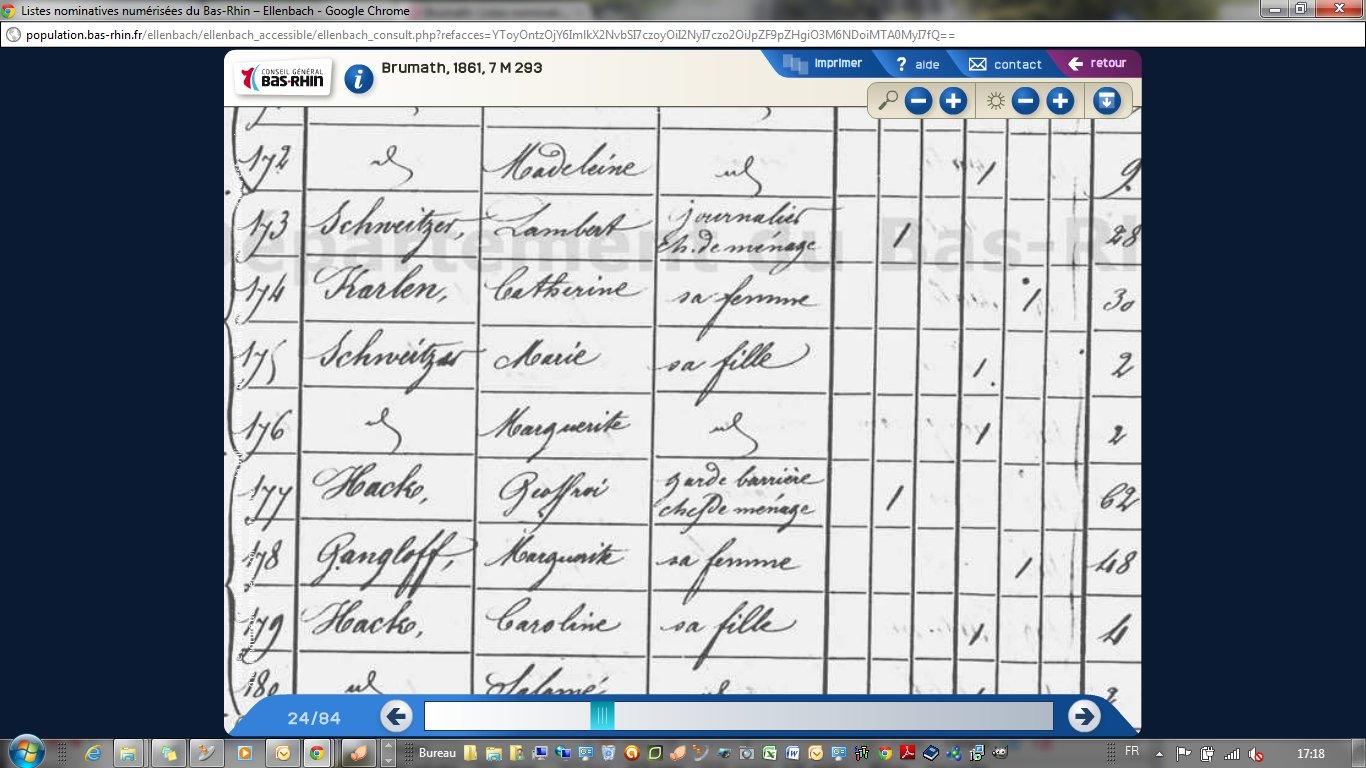 Listes nominatives numérisées du Bas-Rhin – Ellenbach - Google Chrome
population.bas-rhin.fr/ellenbach/ellenbach_accessible/ellenbach_consult.php?refacces=YToyOntzOjY6ImlkX2NvbSI7czoyOiI2NyI7czo2OiJpZF9pZHgiO3M6NDoiMTA0MyI7fQ==
CONSEIL GÉNÉRAL
BAS-RHIN
Brumath, 1861, 7 M 293
imprimer
? aide
contact
retour
172 id Madeleine id 1 9
173 Schweitzer, Lambert journalier ch. de ménage 1 28
174 Karlen, Catherine sa femme 1 30
175 Schweitzer Marie sa fille 1 2
176 id Marguerite id 1 2
177 Hack, Geoffroi garde barrière chef de ménage 1 62
178 Gangloff, Marguerite sa femme 1 48
179 Hack, Caroline sa fille 1 4
180 id Salomé id 1 2
Département du Bas-Rhi
24/84
Bureau
FR
17:18